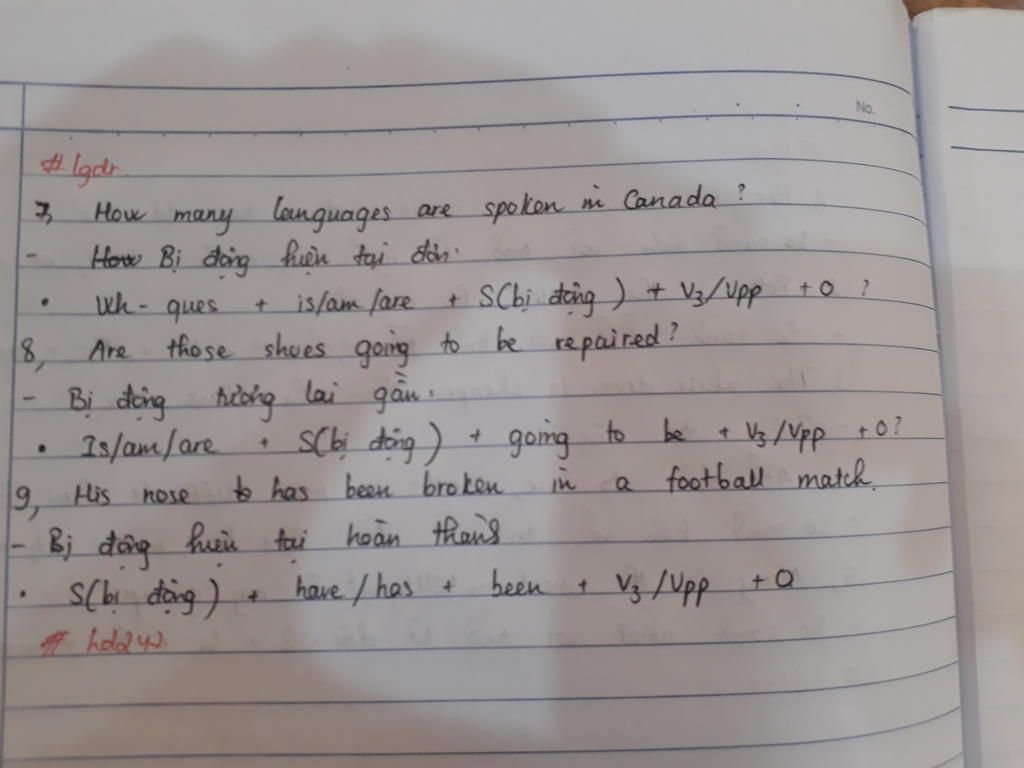 No.
# lgdr
7, How many languages are spoken in Canada ?
- How Bị động hiện tại đơn.
• Wh - ques + is/am/are + S(bị động) + V3/Vpp + O ?
8, Are those shoes going to be repaired?
- Bị động tương lai gần.
• Is/am/are + S(bị động) + going to be + V3/Vpp + O?
9, His nose to has been broken in a football match.
- Bị động hiện tại hoàn thành
• S(bị động) + have/has + been + V3/Vpp + O